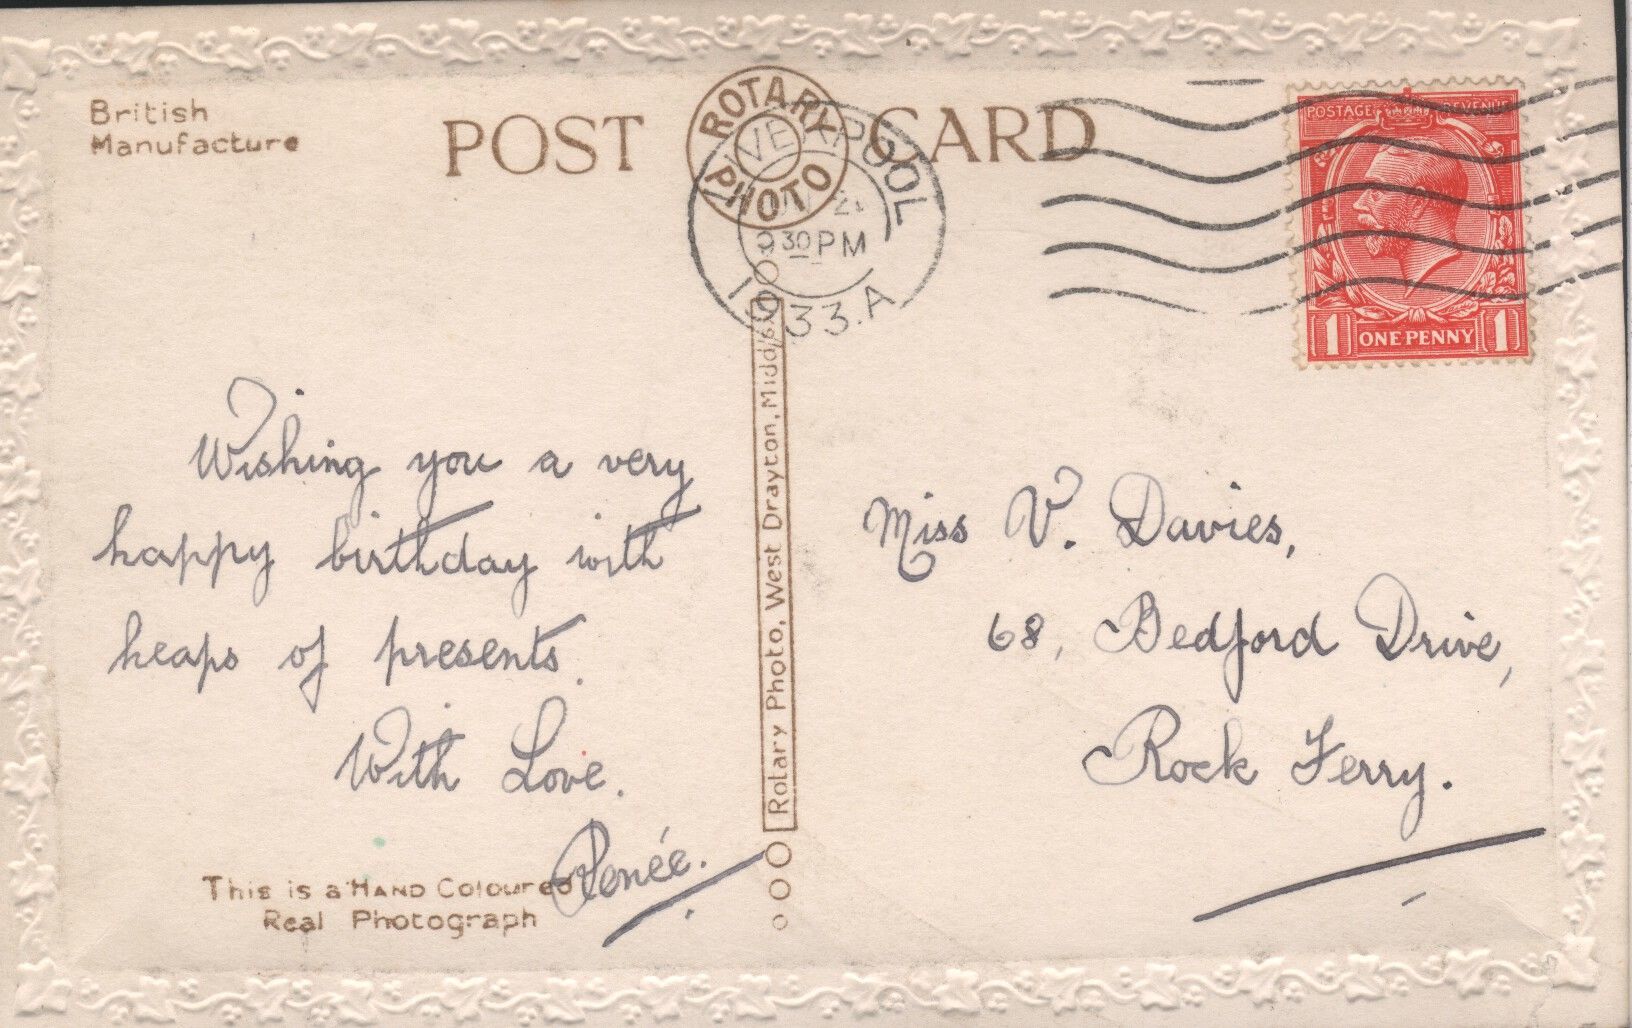 British
Manufacture
POST CARD
ROTARY
PHOTO
LIVERPOOL
9 30 PM
1933.A
POSTAGE REVENUE
1 ONE PENNY 1
Wishing you a very
happy birthday with
heaps of presents.
With Love.
Renée.
This is a HAND Coloured
Real Photograph
Rotary Photo, West Drayton, Middlesex.
Miss V. Davies,
68, Bedford Drive,
Rock Ferry.